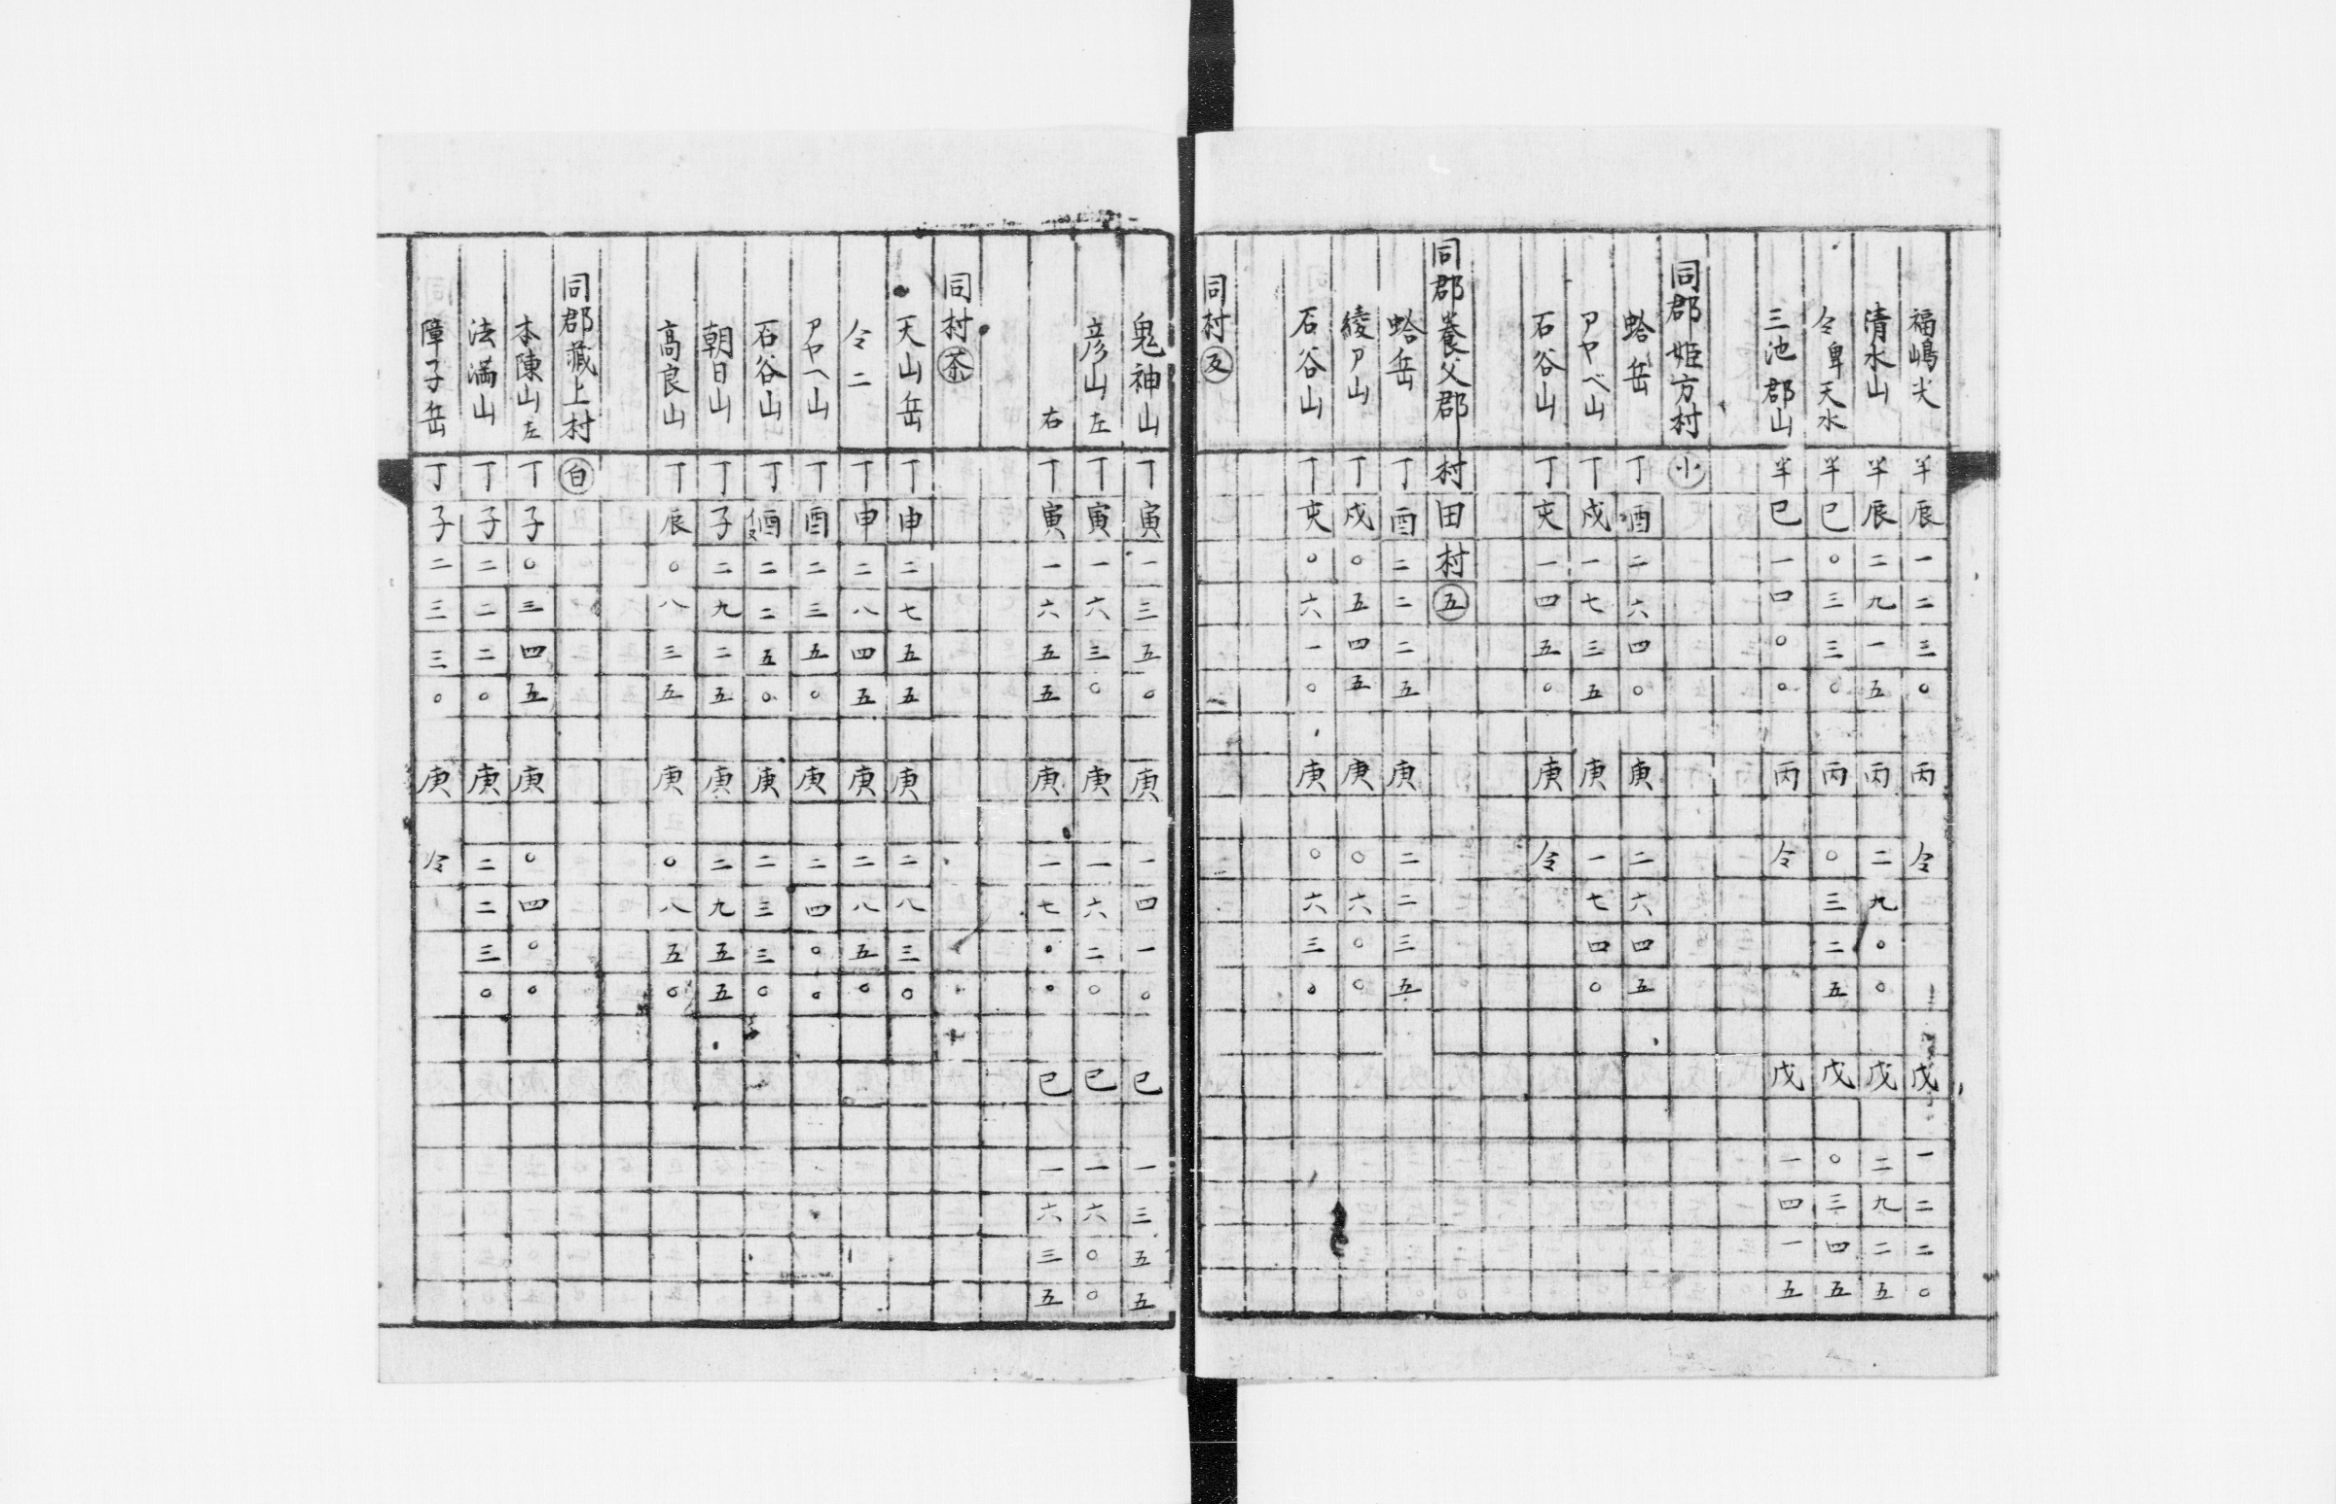 福嶋尖 半辰一二三〇 丙 仝 戊一二二〇
清水山 半辰二九一五 丙二九〇〇 戊二九二五
仝卑天水 半巳〇三三〇 丙〇三二五 戊〇三四五
三池郡山 半巳一四〇〇 丙 仝 戊一四一五
同郡姫方村 小
蛤岳 丁酉二六四〇 庚二六四五
アヤベ山 丁戌一七三五 庚一七四〇
石谷山 丁亥一四五〇 庚 仝
同郡養父郡村田村 五
蛤岳 丁酉二二二五 庚二二三五
綾ア山 丁戌〇五四五 庚〇六〇〇
石谷山 丁亥〇六一〇 庚〇六三〇
同村
鬼神山 丁寅一三五〇 庚一四一〇 巳一三五五
彦山左 丁寅一六三〇 庚一六二〇 巳一六〇〇
右 丁寅一六五五 庚一七〇〇 巳一六三五
同村 茶
天山岳 丁申二七五五 庚二八三〇
仝二 丁申二八四五 庚二八五〇
アヤヘ山 丁酉二三五〇 庚二四〇〇
石谷山 丁酉二二五〇 庚二三三〇
朝日山 丁子二九二五 庚二九五五
高良山 丁辰〇八三五 庚〇八五〇
同郡蔵上村 白
本陳山左 丁子〇三四五 庚〇四〇〇
法満山 丁子二二二〇 庚二二三〇
障子岳 丁子二三三〇 庚 仝